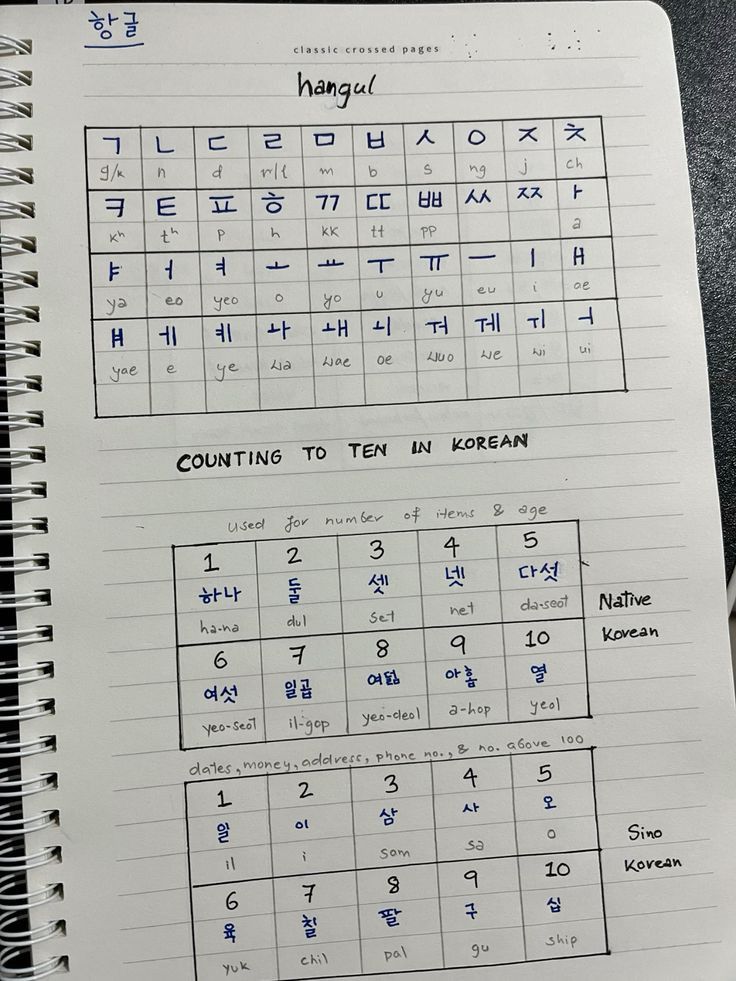 항글
classic crossed pages
hangul
ㄱ ㄴ ㄷ ㄹ ㅁ ㅂ ㅅ ㅇ ㅈ ㅊ
g/k n d r/l m b s ng j ch
ㅋ ㅌ ㅍ ㅎ ㄲ ㄸ ㅃ ㅆ ㅉ ㅏ
kʰ tʰ p h kk tt pp a
ㅑ ㅓ ㅕ ㅗ ㅛ ㅜ ㅠ ㅡ ㅣ ㅐ
ya eo yeo o yo u yu eu i ae
ㅒ ㅔ ㅖ ㅘ ㅙ ㅚ ㅝ ㅞ ㅟ ㅢ
yae e ye wa wae oe wuo we wi ui
COUNTING TO TEN IN KOREAN
used for number of items & age
1 2 3 4 5
하나 둘 셋 넷 다섯
ha-na dul set net da-seot
Native
Korean
6 7 8 9 10
여섯 일곱 여덟 아홉 열
yeo-seot il-gop yeo-deol a-hop yeol
dates, money, address, phone no., & no. above 100
1 2 3 4 5
일 이 삼 사 오
il i som sa o
Sino
Korean
6 7 8 9 10
육 칠 팔 구 십
yuk chil pal gu ship